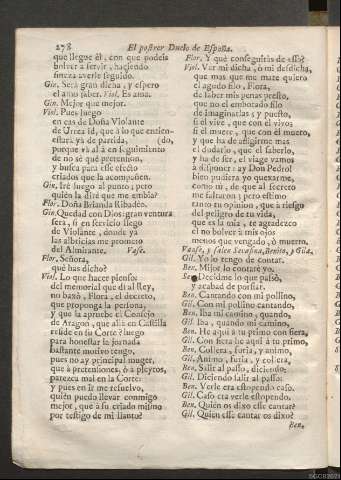 278
El postrer Duelo de España.
que llegue él, con que podeis
bolver a servir, haziendo
fineza averle seguido.
Gin. Será gran dicha, y espero
el amo saber. Viol. Es ama.
Gin. Mejor que mejor.
Viol. Pues luego
en cas de Doña Violante
de Urrea id, que à lo que entien-
estará yà de partida, (do,
porque và al à en seguimiento
de no sé què pretension,
y busca para esse efecto
criados que la acompañen.
Gin. Irè luego al punto; pero
quièn la dirè que me embia?
Flor. Doña Brianda Ribadèo.
Gin. Quedad con Dios: gran ventura
serà, si en servicio llego
de Violante, donde yà
las albricias me prometo
del Almirante. Vase.
Flor. Señora,
què has dicho?
Viol. Lo que hacer pienso:
del memorial que di al Rey,
no baxò, Flora, el decreto,
que proponga la persona,
y que la apruebe el Consejo
de Aragon, que allà en Castilla
reside en su Corte? luego
para honestar la jornada
bastante motivo tengo,
pues no ay principal muger,
que à pretensiones, ò à pleytos,
parezca mal en la Corte:
y pues en ir me resuelvo,
quièn puedo llevar conmigo
mejor, que à su criado mismo
por testigo de mi llanto?
Flor. Y què conseguiràs de esso?
Viol. Ver mi dicha, ò mi desdicha,
que mas que me mate quiero
el agudo filo, Flora,
de saber mis penas presto,
que no el embotado filo
de imaginarlas; y puesto,
si èl vive, que con èl vivo;
si èl muere, que con èl muero,
y que ha de afligirme mas
el dudarlo, que el saberlo,
y ha de ser, el viage vamos
à disponer: ay Don Pedro!
bien pudiera yo quexarme,
como tù, de que al secreto
me faltaron; pero estimo
tanto tu opinion, que à riesgo
del peligro de tu vida,
que es la mia, te agradezco
el no bolver à mis ojos
menos que vengado, ò muerto.
Vanse, y salen Serafina, Benito, y Gila.
Gil. Yo lo tengo de contar.
Ben. Mijor lo contarè yo.
Ser. Decidme lo que passò,
y acabad de porfiar.
Ben. Cantando con mi pollino,
Gil. Con mi pollino cantando,
Ben. Iba mi camino, quando,
Gil. Iba, quando mi camino,
Ben. He aqui à tu primo con fiera,
Gil. Con fiera he aqui à tu primo,
Ben. Collera, furia, y animo,
Gil. Animo, furia, y collera,
Ben. Salir al passo, diciendo:
Gil. Diciendo salir al passo:
Ben. Verle era estopendo caso.
Gil. Caso era verle estopendo.
Ben. Quièn os dixo esse cantar?
Gil. Quièn esse cantar os dixo?
Ben.